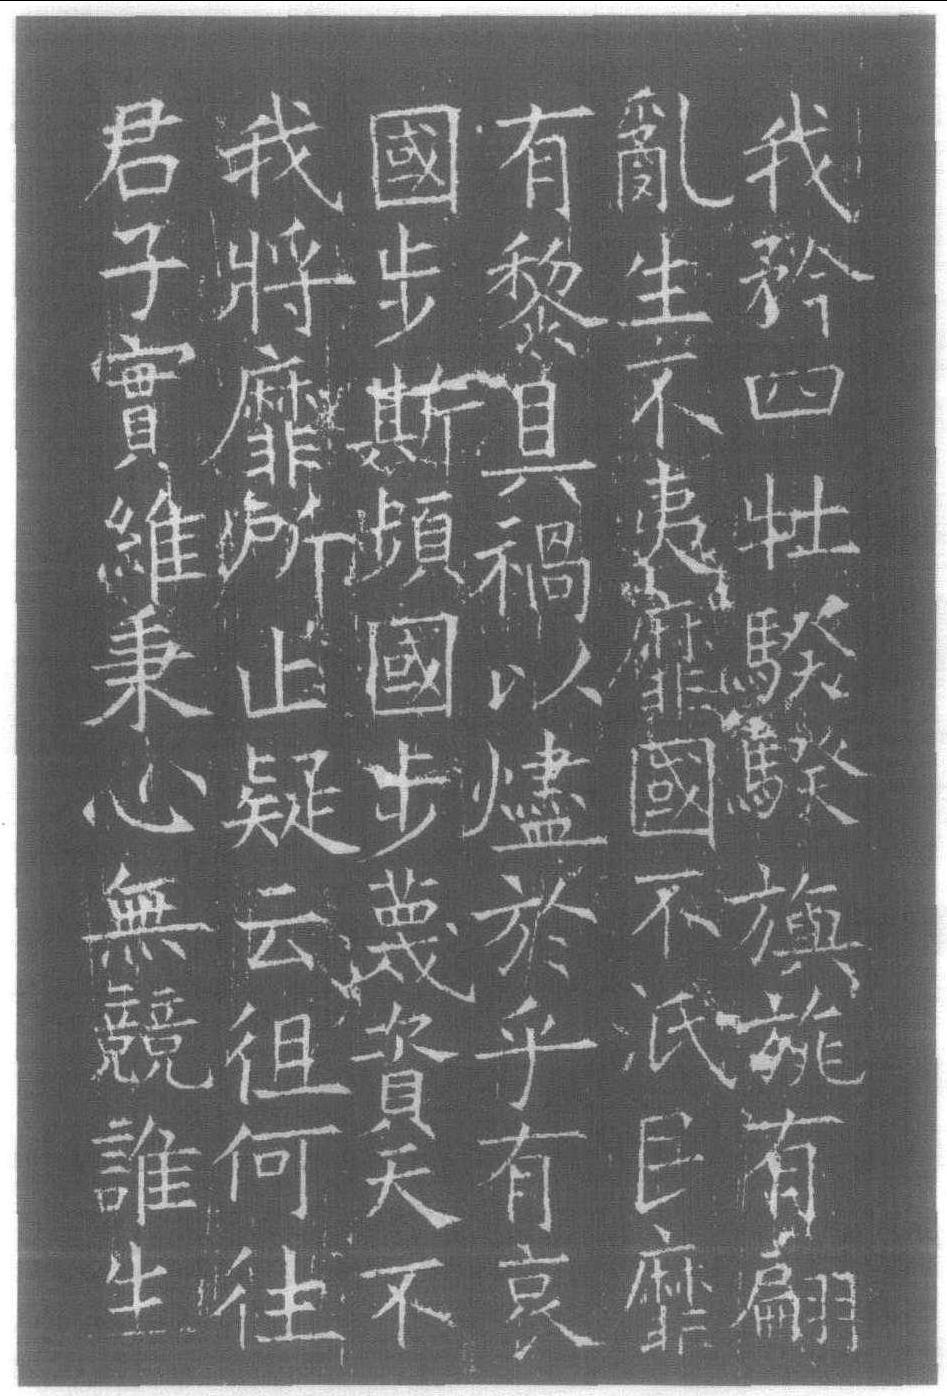 我矜四牡騤騤旟旐有翩
亂生不夷靡國不泯民靡
有黎具禍以燼於乎有哀
國步斯頻國步蔑資天不
我將靡所止疑云徂何往
君子實維秉心無競誰生